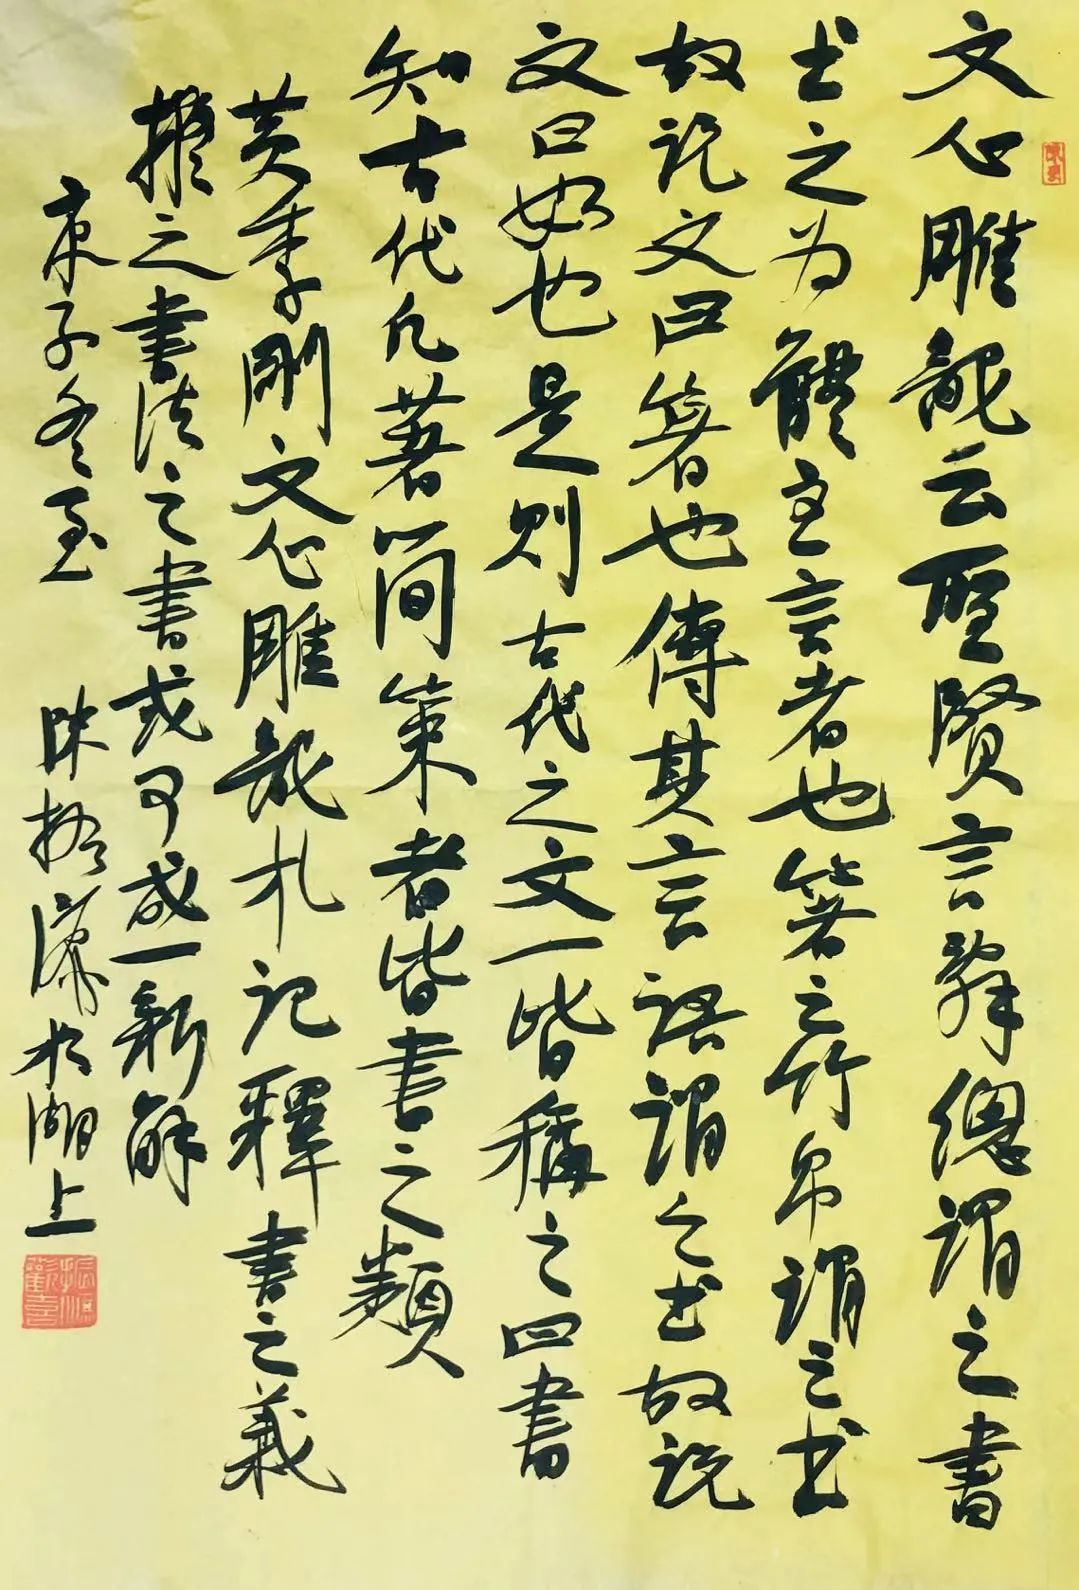 文心雕龍云聖賢言辭總謂之書
书之为體主言者也箸之竹帛謂之书
故説文曰箸也傳其言語謂之书故説
文曰如也是则古代之文一皆稱之曰書
知古代凡著简策者皆書之類
黄季剛文心雕龍札记釋書之義
擬之書法之書或可成一新解
庚子冬至 张於湖上